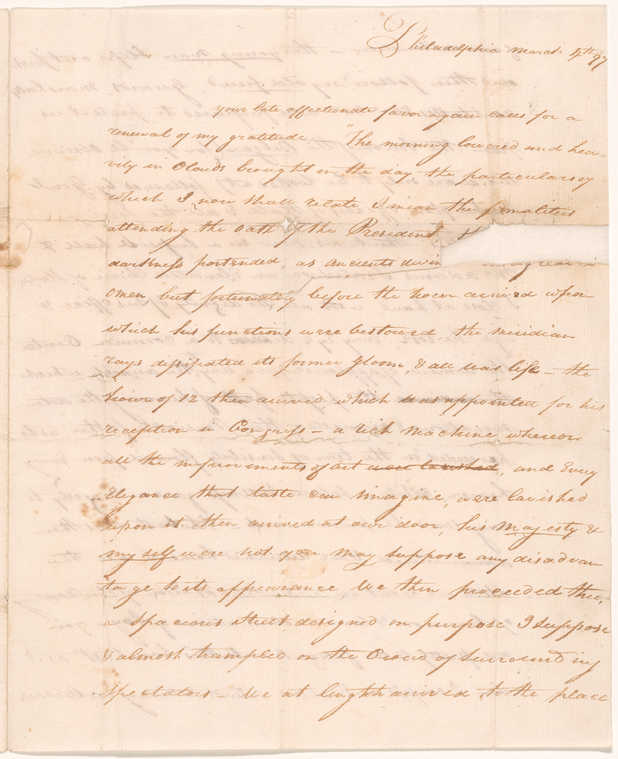 Philadelphia March 4th 97
your late affectionate favor again calls for a
renewal of my gratitude. "The morning lowered and hea-
vily in Clouds brought on the day the particulars of
which I now shall relate I mean the formalities
attending the Oath of the President,
darkness portended, as ancients divin
omen but fortunately before the hour arrived upon
which his functions were bestowed the meridian
rays dissipated its former gloom, & all was life – the
hour of 12 then arrived which was appointed for his
reception in Congress – a rich Machine whereon
all the improvements of art were lavished, and Every
Elegance that taste can imagine, were lavished
upon it then arrived at our door, his Majesty &
my self were not you may suppose any disadvan
tage to its appearance We then proceeded thro,
a Spacious street designed on purpose I suppose
& almost trampled on the Croud of surrounding
Spectators We at length arrived to the place